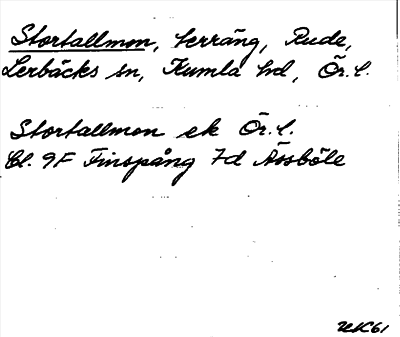 Stortallmon, terräng, Rude,
Lerbäcks sn, Kumla hd, Ör. l.
Stortallmon ek Ör. l.
Bl. 9F Finspång 7d Åssböle
UK61